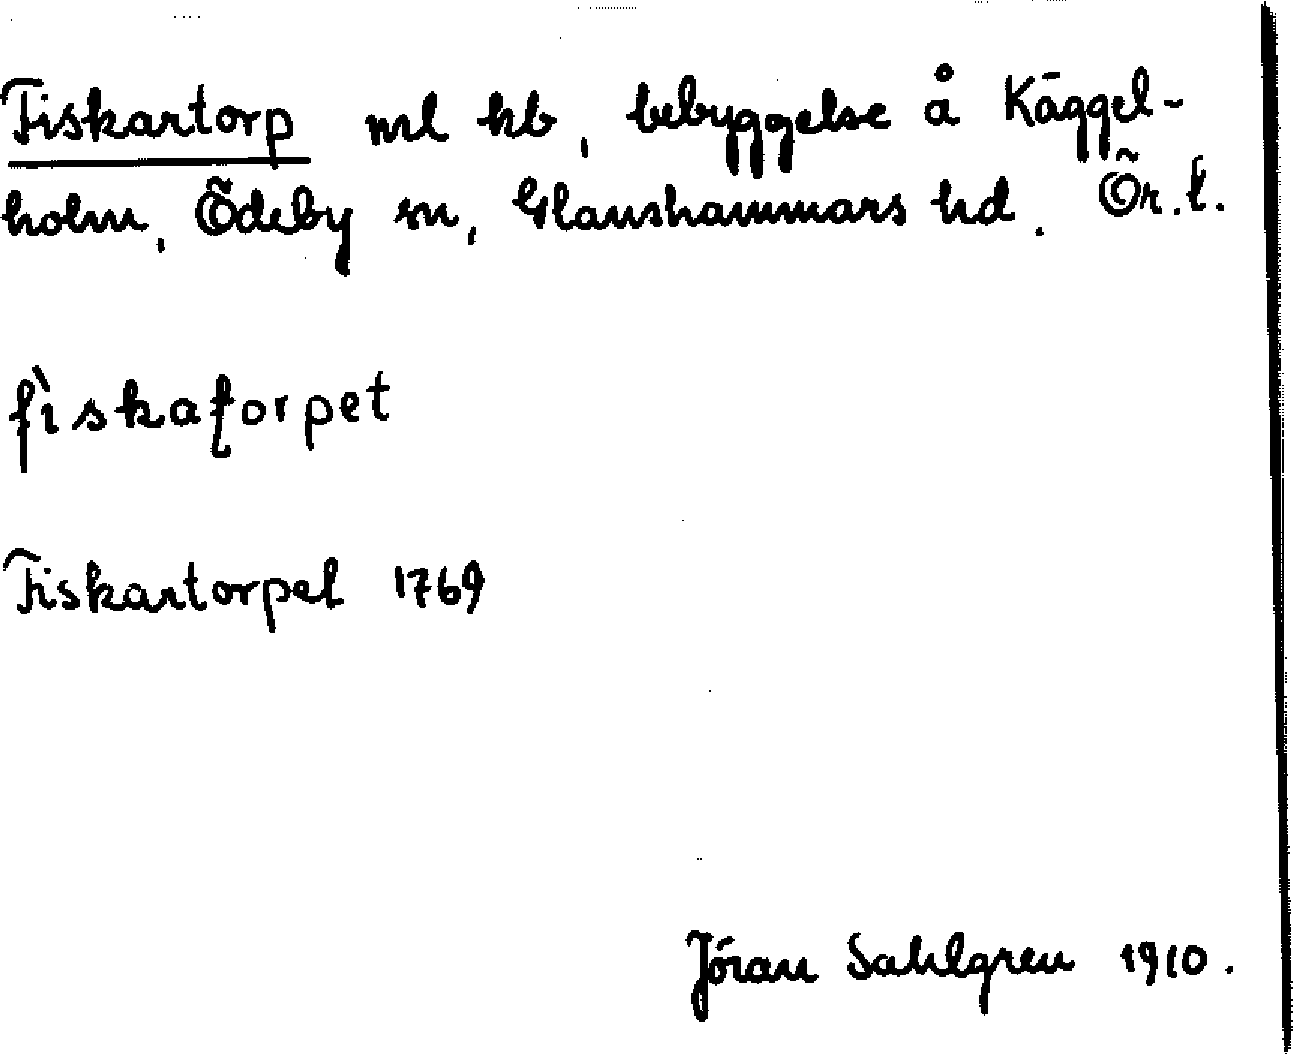 Fiskartorp ml kb, bebyggelse å Käggel-
holm, Ödeby sn, Glanshammars hd. Ör. l.
fìskaforpet
Fiskartorpet 1769
Jöran Sahlgren 1910.